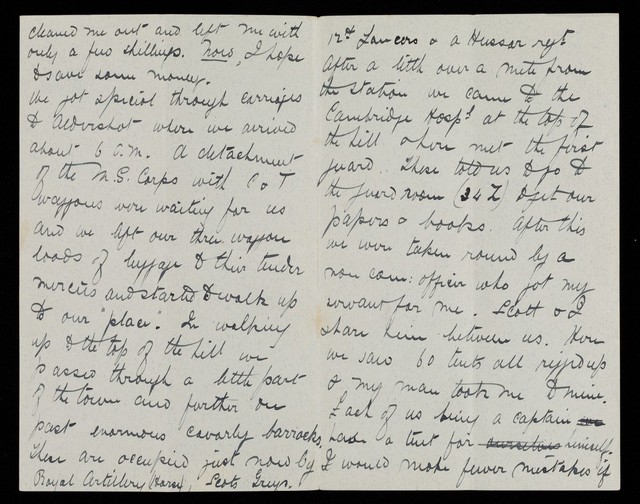 cleaned me out and left me with
only a few shillings. Now, I hope
to save some money.
We got special through carriages
to Aldershot where we arrived
about 6 a.m. A detachment
of the M.S. Corps with C & T
waggons were waiting for us
and we left our three waggon
loads of luggage to their tender
mercies and started to walk up
to our "place". In walking
up to the top of the hill we
passed through a little part
of the town and further on
past enormous cavalry barracks.
These are occupied just now by
Royal Artillery (Horse), Scots Greys,
12th Lancers & a Hussar regt.
After a little over a mile from
the station we came to the
Cambridge Hospl. at the top of
the hill & here met the first
guard. These told us to go to
the guard room (34 Z) & get our
papers & books. After this
we were taken round by a
non com: officer who got my
servant for me. Scott & I
share him between us. Here
we saw 60 tents all rigged up
& my man took me to mine.
Each of us being a captain
has a tent for ourselves himself.
I would make fewer mistakes if